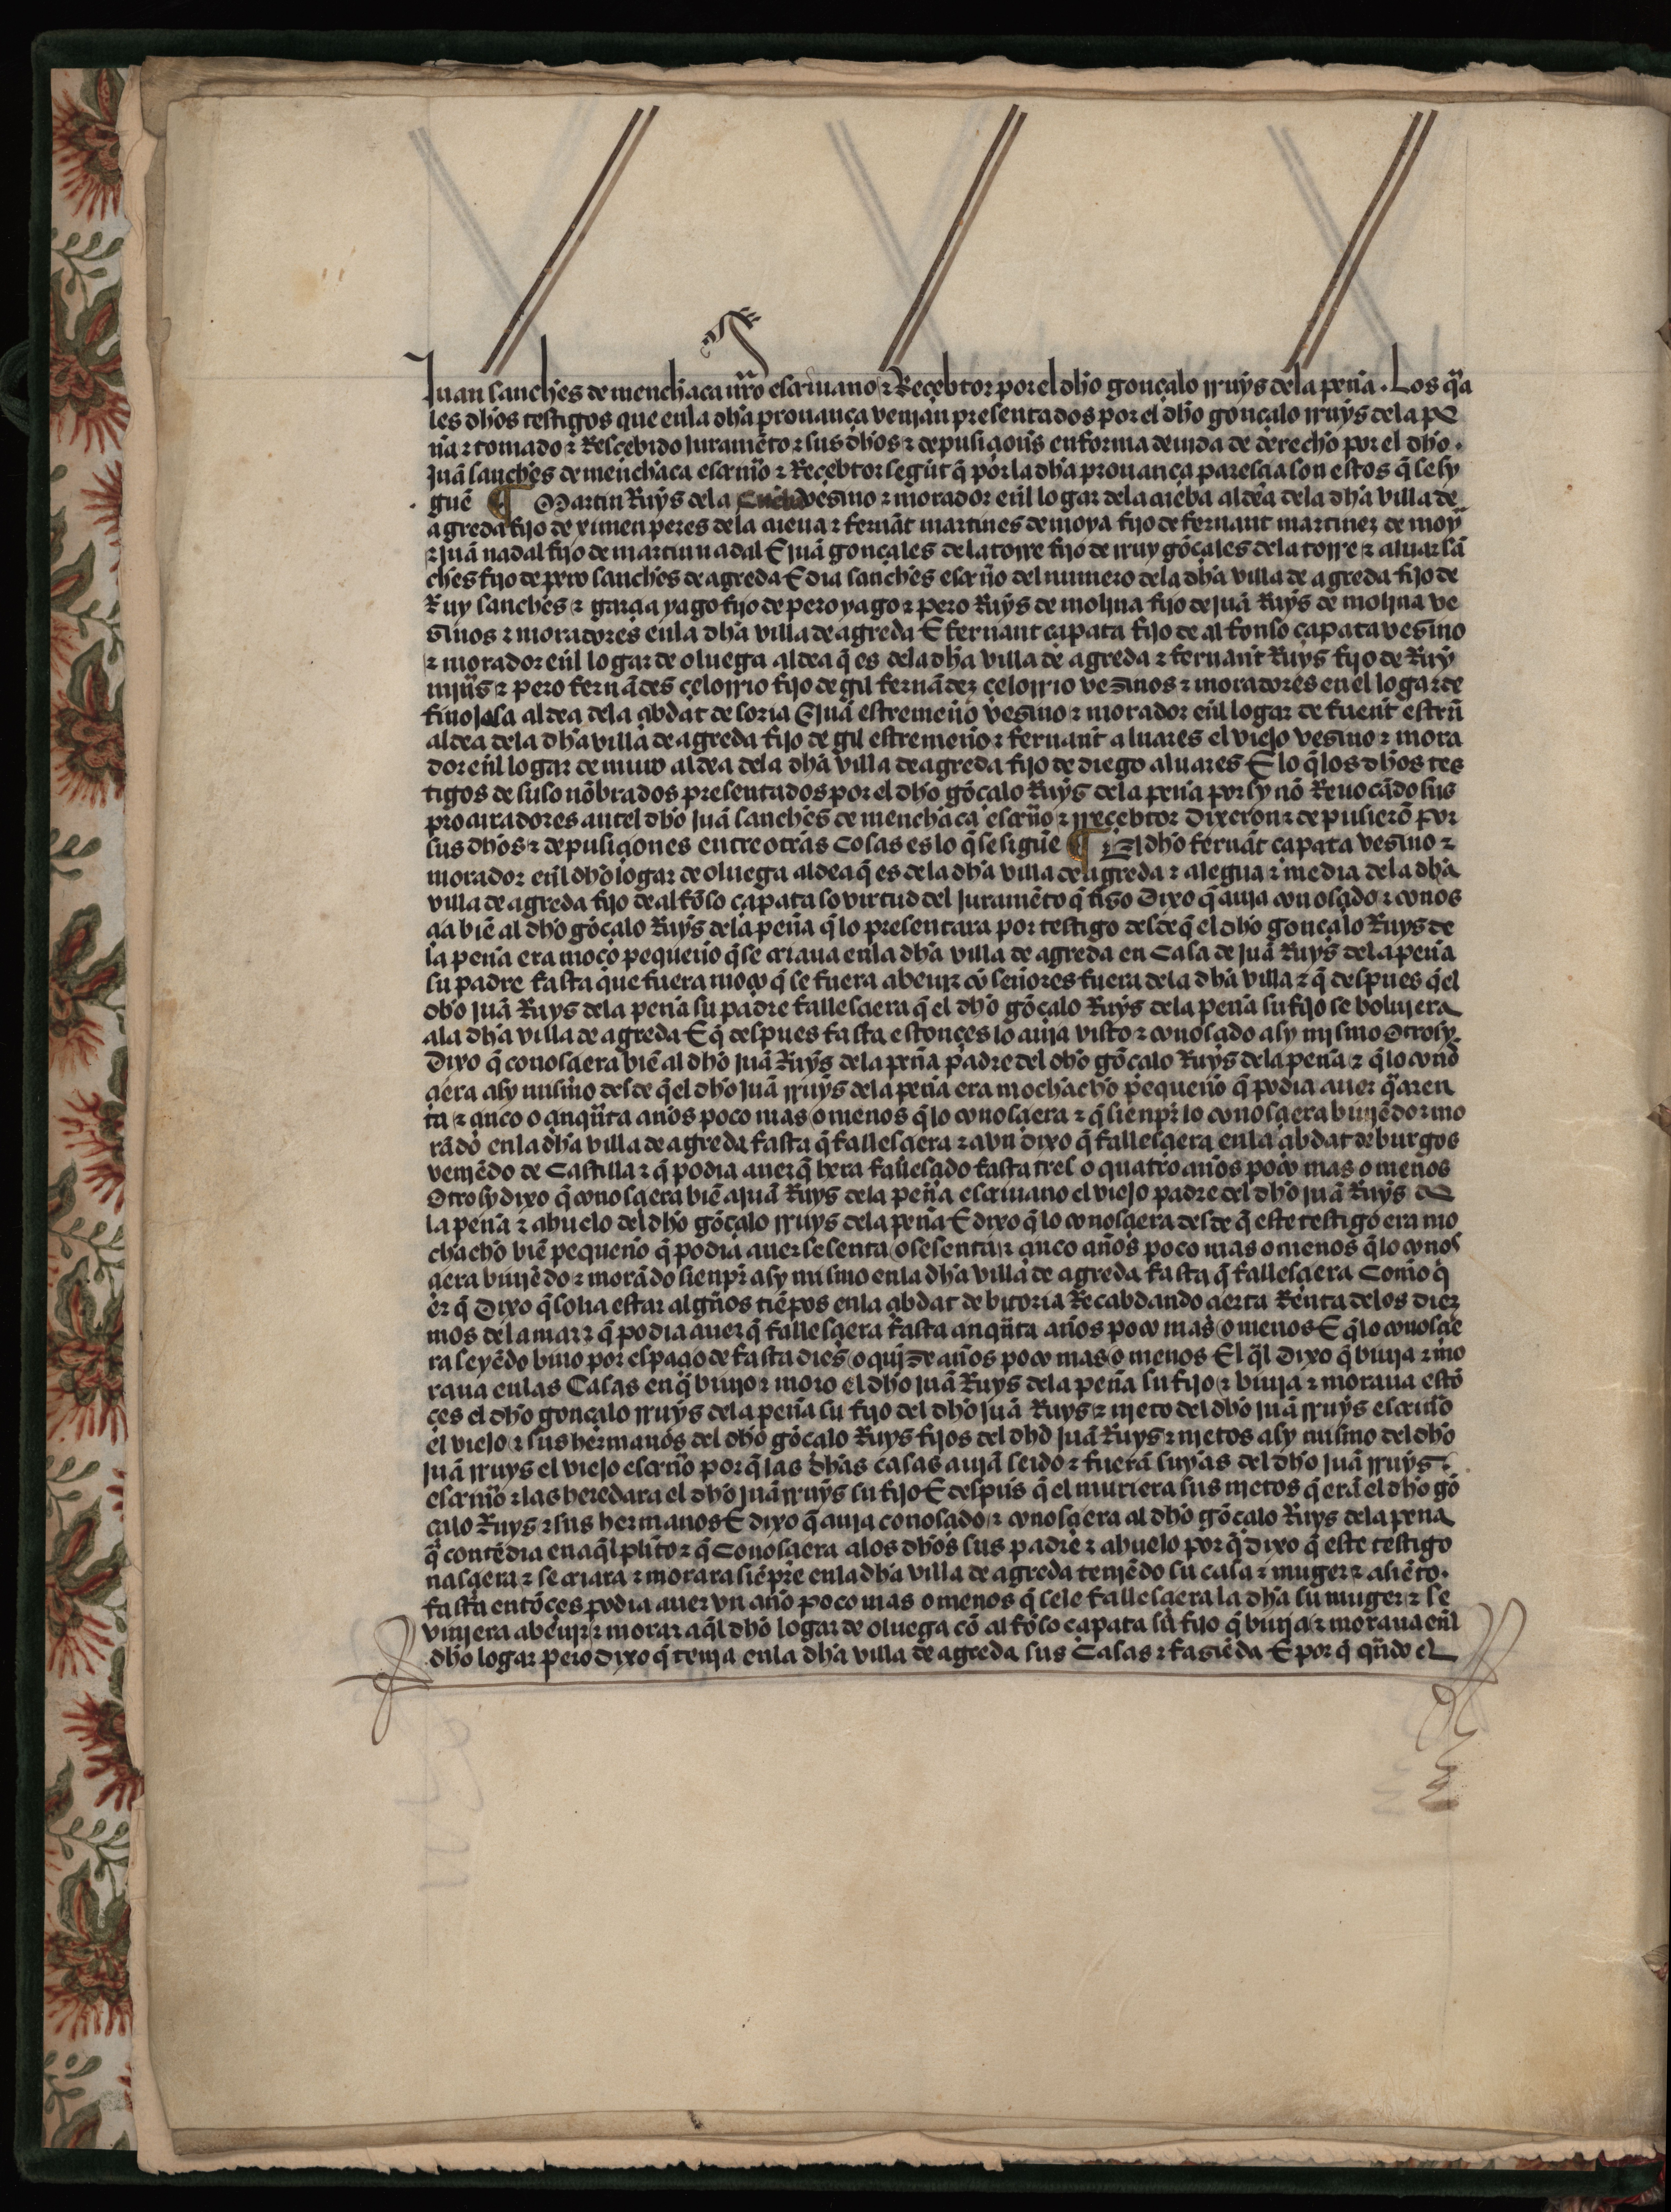 Juan sanches de menchaca nr̃o escriuano ⁊ Reçebtor por el dh̃o gonçalo rruys dela peña . Los q̃a
les dh̃os testigos que enla dh̃a prouança venjan presentados por el dh̃o gonçalo rruys dela pe
ña ⁊ tomado ⁊ Resçebido Juramẽto ⁊ sus dh̃os ⁊ depusiçions̃ en forma deuida de derecho por el dh̃o .
Juã sanches de menchaca escrui̾o ⁊ Reçebtor segũt q̃ por la dh̃a prouança paresçia son estos q̃ se sy
guẽ ¶ Martin Ruys dela vesino ⁊ morador eñl logar dela cueba aldea dela dh̃a villa de
agreda fijo de ximen peres dela cueua ⁊ fernãt martines de moya fijo de fernant martinez de moya
⁊ juã nadal fijo de martin nadal E juã gonçales dela torre fijo de rruy gõçales dela torre ⁊ aluar sã
ches fijo de pero sanches de agreda E dia sanches escr̃io del numero dela dh̃a villa de agreda fijo de
Ruy sanches ⁊ garçia yago fijo de pero yago ⁊ pero Ruys de molina fijo de juã Ruys de molina ve
sinos ⁊ moradores enla dh̃a villa de agreda E fernant çapata fijo de alfonso çapata vesino
⁊ morador eñl logar de oluega aldea q̃ es dela dh̃a villa de agreda ⁊ fernant Ruys fijo de Ruy
mñs ⁊ pero fernãdes çelorrio fijo de gil fernãdez çelorrio vezinos ⁊ moradores en el logar de
finojosa aldea dela çibdat de soria E juã estremeño vesino ⁊ morador eñl logar de fuent estrũ
aldea dela dh̃a villa de agreda fijo de gil estremeño ⁊ fernant aluares el viejo vesino ⁊ mora
dor eñl logar de muro aldea dela dh̃a villa de agreda fijo de diego aluares E lo q̃ los dh̃os tes
tigos de suso nõbrados presentados por el dh̃o gõçalo Ruys dela peña por sy nõ Reuocãdo sus
procuradores antel dh̃o juã sanches de menchaca escr̃io ⁊ rreçebtor Dixeron ⁊ depusierõ por
sus dh̃os ⁊ depusiçiones entre otras Cosas es lo q̃ se siguẽ ¶ El dh̃o fernãt çapata vesino ⁊
morador eñl dh̃o logar de oluega aldea q̃ es dela dh̃a villa de agreda ⁊ a legua ⁊ media dela dh̃a
villa de agreda fijo de alfõso çapata so virtud del juramẽto q̃ fiso Dixo q̃ auja conosçido ⁊ conos
çia biẽ al dh̃o gõçalo Ruys dela peña q̃ lo presentara por testigo desde q̃ el dh̃o gonçalo Ruys de
la peña era moço pequeño q̃ se criaua enla dh̃a villa de agreda en Casa de juã Ruys dela peña
su padre fasta que fuera moço q̃ se fuera abeujr cõ señores fuera dela dh̃a villa ⁊ q̃ despues q̃ el
dh̃o juã Ruys dela peña su padre fallesçiera q̃ el dh̃o gõçalo Ruys dela peña su fijo se boluiera
ala dh̃a villa de agreda E q̃ despues fasta estonçes lo auja visto ⁊ conosçido asy mjsmo Otrosy
Dixo q̃ conosçiera biẽ al dh̃o juã Ruys dela peña padre del dh̃o gõçalo Ruys dela peña ⁊ q̃ lo cono
çiera asy mismo desde q̃ el dh̃o juã rruys dela peña era mochacho pequeño q̃ podia auer q̃aren
ta ⁊ çinco o çinq̃nta años poco mas o menos q̃ lo conosçiera ⁊ q̃ sienpr̃ lo conosçiera biujẽdo ⁊ mo
rãdo enla dh̃a villa de agreda fasta q̃ fallesçiera ⁊ avn dixo q̃ fallesçiera enla çibdat de burgos
venjẽdo de Castilla ⁊ q̃ podia auer q̃ hera fallesçido fasta tres o quatro años poco mas o menos
Otrosy dixo q̃ conosçiera biẽ a juã Ruys dela peña escriuano el viejo padre del dh̃o juã Ruys de
la peña ⁊ abuelo del dh̃o gõçalo rruys dela peña E dixo q̃ lo conosçiera desde q̃ este testigo era mo
chacho biẽ pequeño q̃ podia auer sesenta o sesenta ⁊ çinco años poco mas o menos q̃ lo conos
çiera biujẽdo ⁊ morãdo sienpr̃ asy mismo enla dh̃a villa de agreda fasta q̃ fallesçiera Comõ q̃
er q̃ Dixo q̃ solia estar algũos tiẽpos enla çibdat de bitoria Recabdando çierta Renta delos diez
mos dela mar ⁊ q̃ podia auer q̃ fallesçiera fasta çinq̃nta años poco mas o menos E q̃ lo conosçie
ra seyẽdo biuo por espaçio de fasta dies o quinze años poco mas o menos El q̃l Dixo q̃ biuja ⁊ mo
raua enlas Casas en q̃ biujo ⁊ moro el dh̃o juã Ruys dela peña su fijo ⁊ biuja ⁊ moraua estõ
çes el dh̃o gonçalo rruys dela peña su fijo del dh̃o juã Ruys ⁊ njeto del dh̃o juã rruys escriũo
el viejo ⁊ sus hermanos del dh̃o gõçalo Ruys fijos del dh̃o juã Ruys ⁊ njetos asy mismo del dh̃o
juã rruys el viejo escr̃io por q̃ las dh̃as casas aujã seido ⁊ fuerã suyas del dh̃o juã rruys
escriu̾o ⁊ las heredara el dh̃o juã rruys su fijo E despũs q̃ el muriera sus njetos q̃ erã el dh̃o gõ
çalo Ruys ⁊ sus hermanos E dixo q̃ auja conosçido ⁊ conosçiera al dh̃o gõçalo Ruys dela peña
q̃ contẽdia en aq̃l pl̃ito ⁊ q̃ Conosçiera alos dh̃os sus padre ⁊ abuelo por q̃ dixo q̃ este testigo
nasçiera ⁊ se criara ⁊ morara siẽpre enla dh̃a villa de agreda tenjẽdo su casa ⁊ muger ⁊ asiẽto .
fasta entõçes podia auer vn año poco mas o menos q̃ se le fallesçiera la dh̃a su muger ⁊ se
vinjera abeujr ⁊ morar a aq̃l dh̃o logar de oluega cõ alfõso çapata su fijo q̃ biuja ⁊ moraua eñl
dh̃o logar pero Dixo q̃ tenja enla dh̃a villa de agreda sus Casas ⁊ fasiẽda E por q̃ qñdo el